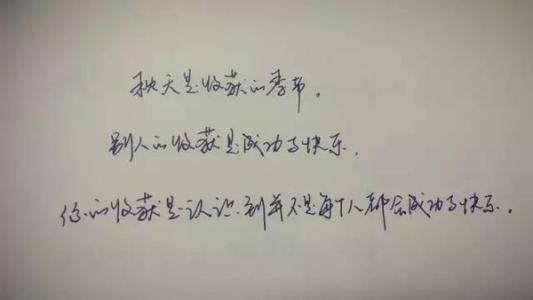 秋天是收获的季节。
别人的收获是成功与快乐.
你的收获是认识到并不是每个人都会成功与快乐。